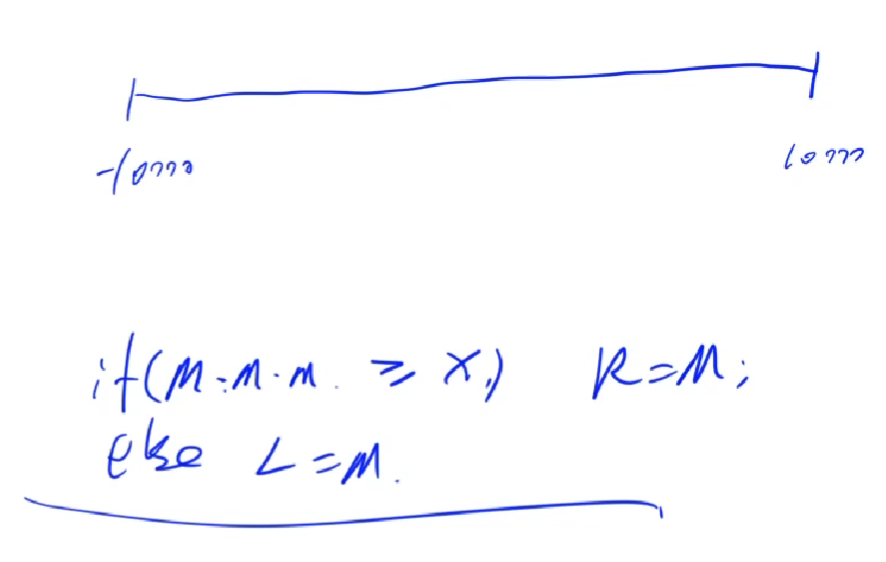 -10000
10000
if(M·M·M. ≥ X) R=M;
else L=M.